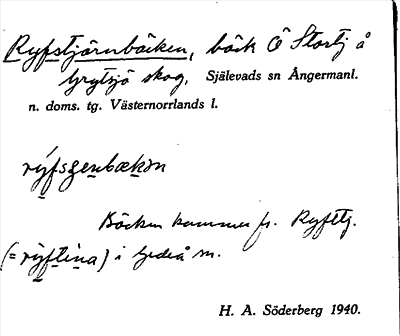 Ryfstjärnbäcken, bäck Ö Stortj å
Grytsjö skog, Själevads sn Ångermanl.
n. doms. tg. Västernorrlands l.
Bäcken kommer fr. Ryfstj.
i Gideå sn.
H. A. Söderberg 1940.